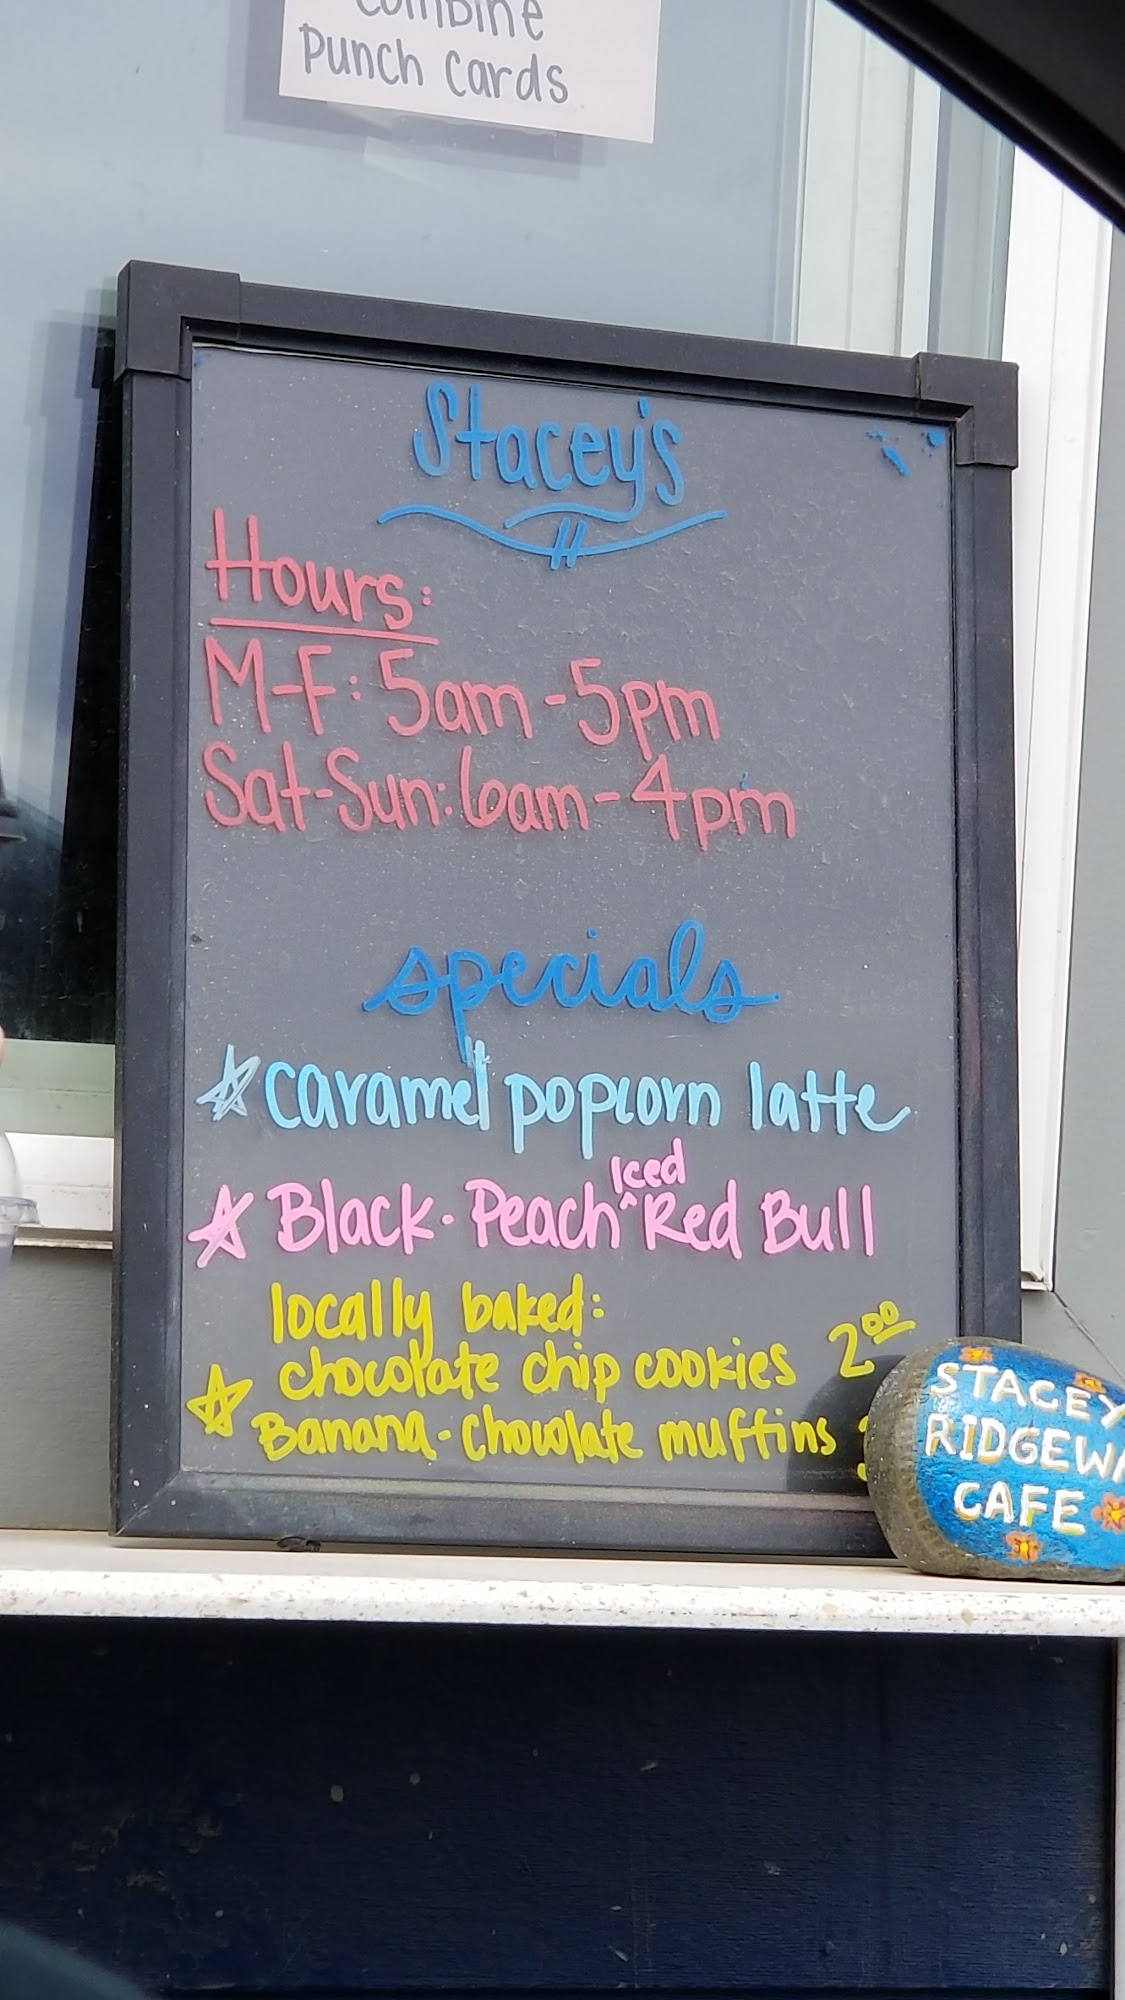 combine
punch cards
Stacey's
Hours:
M-F: 5am-5pm
Sat-Sun: 6am-4pm
specials
caramel popcorn latte
Black-Peach ^Iced Red Bull
locally baked:
chocolate chip cookies 2.00
Banana-chocolate muffins
STACEY
RIDGEWA
CAFE